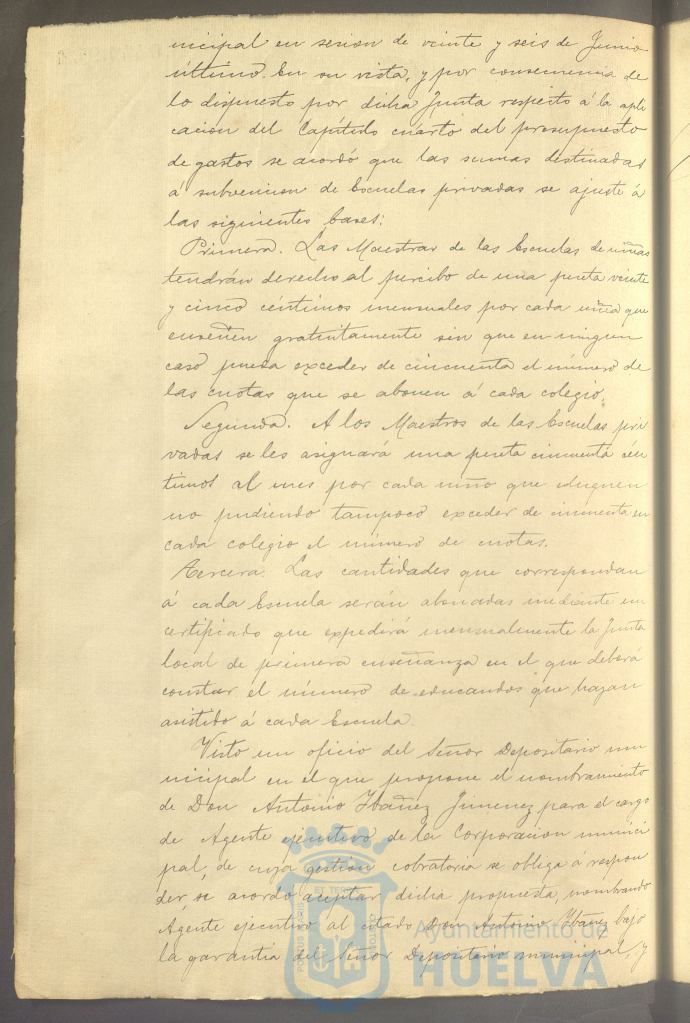 nicipal en sesion de veinte y seis de Junio
último. En su vista, y por consecuencia de
lo dispuesto por dicha Junta respecto á la apli
cacion del Capítulo cuarto del presupuesto
de gastos se acordó que las sumas destinadas
á subvencion de Escuelas privadas se ajuste á
las siguientes bases:
Primera. Las Maestras de las Escuelas de niñas
tendrán derecho al percibo de una peseta veinte
y cinco céntimos mensuales por cada niña que
enseñen gratuitamente sin que en ningun
caso pueda exceder de cincuenta el número de
las cuotas que se abonen á cada colegio.
Segunda. A los Maestros de las Escuelas pri
vadas se les asignará una peseta cincuenta cén
timos al mes por cada niño que eduquen
no pudiendo tampoco exceder de cincuenta en
cada colegio el número de cuotas.
Tercera. Las cantidades que correspondan
á cada Escuela serán abonadas mediante un
certificado que expedirá mensualmente la Junta
local de primera enseñanza en el que deberá
constar el número de educandos que hayan
asistido á cada Escuela.
Visto un oficio del Señor Depositario mu
nicipal en el que propone el nombramiento
de Don Antonio Ibañez Jimenez para el cargo
de Agente ejecutivo de la Corporacion munici
pal, de cuya gestion cobratoria se obliga á respon
der, se acordó aceptar dicha propuesta, nombrando
Agente ejecutivo al citado Don Antonio Ibañez bajo
la garantia del Señor Depositario municipal, y
Ayuntamiento de
HUELVA
PORTUS MARIS ET TERRAE CUSTODIA